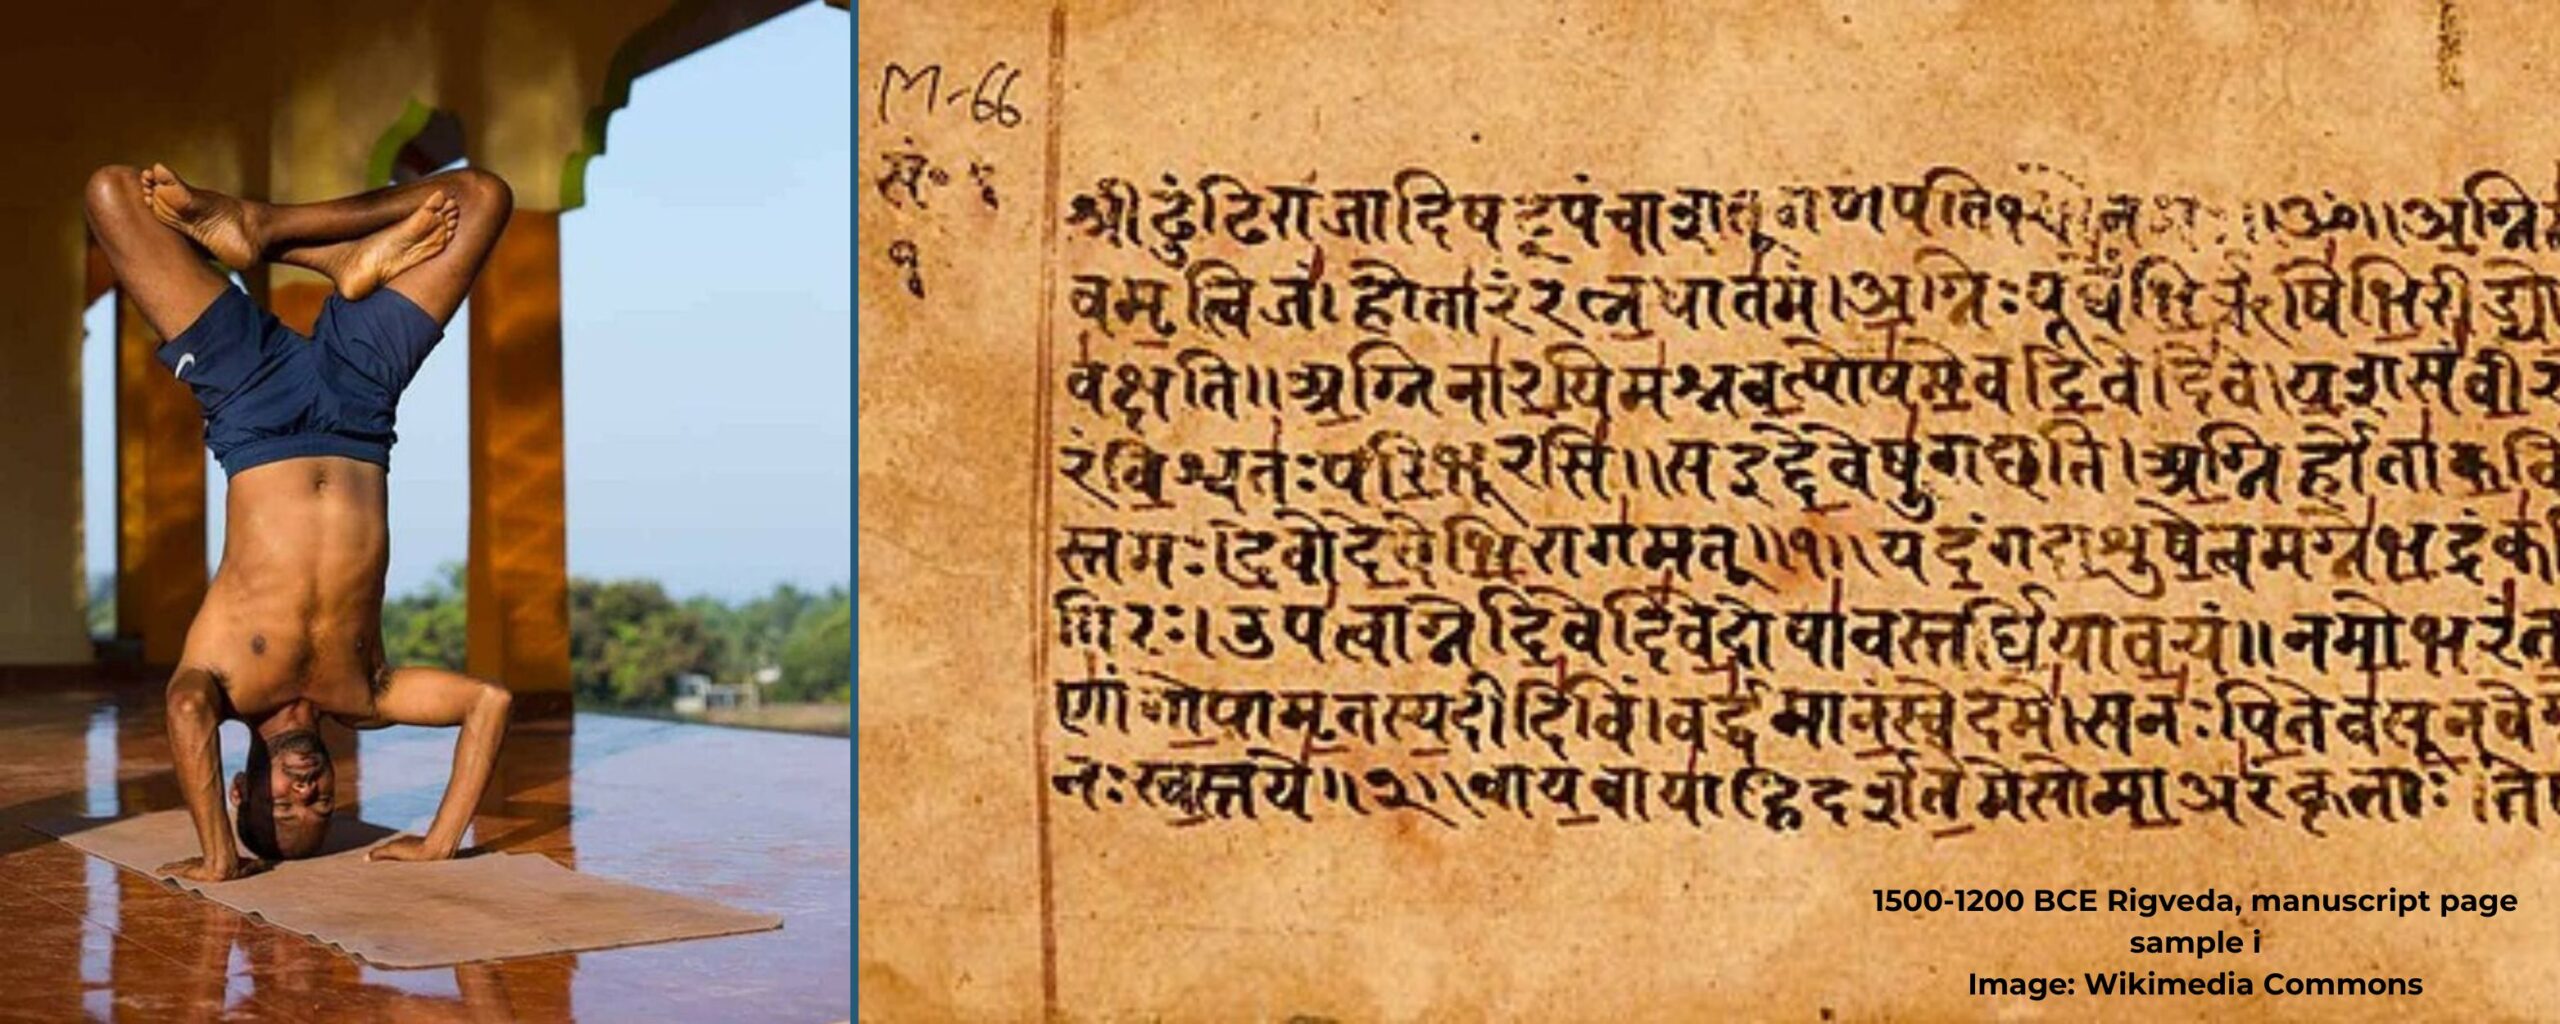 M-66
श्रीढुंढिराजादिषट्पंचाशत्गणपतिभ्योनमः॥ॐ॥अग्नि
वमृत्विजं।होतारंरत्नधातमं।अग्निःपूर्वेभिर्ऋषिभिरीड्यो
वक्षति॥अग्निनारयिमश्नवत्पोषमेवदिवेदिवे।यशसंवीर
रंविश्वतःपरिभूरसि॥सइद्देवेषुगछति।अग्निर्होताकवि
स्तमः।देवोदेवेभिरागमत्॥१॥यदंगदाशुषेत्वमग्नेभद्रंक
गिरः।उपत्वाग्नेदिवेदिवेदोषावस्तर्धियावयं॥नमोभरंत
णांगोपामृतस्यदीदिविं।वर्द्धमानंस्वेदमे।सनःपितेवसूनवे
नःस्वस्तये॥२॥वायवायाहिदर्शतेमेसोमाअरंकृताः।ते
1500-1200 BCE Rigveda, manuscript page
sample i
Image: Wikimedia Commons